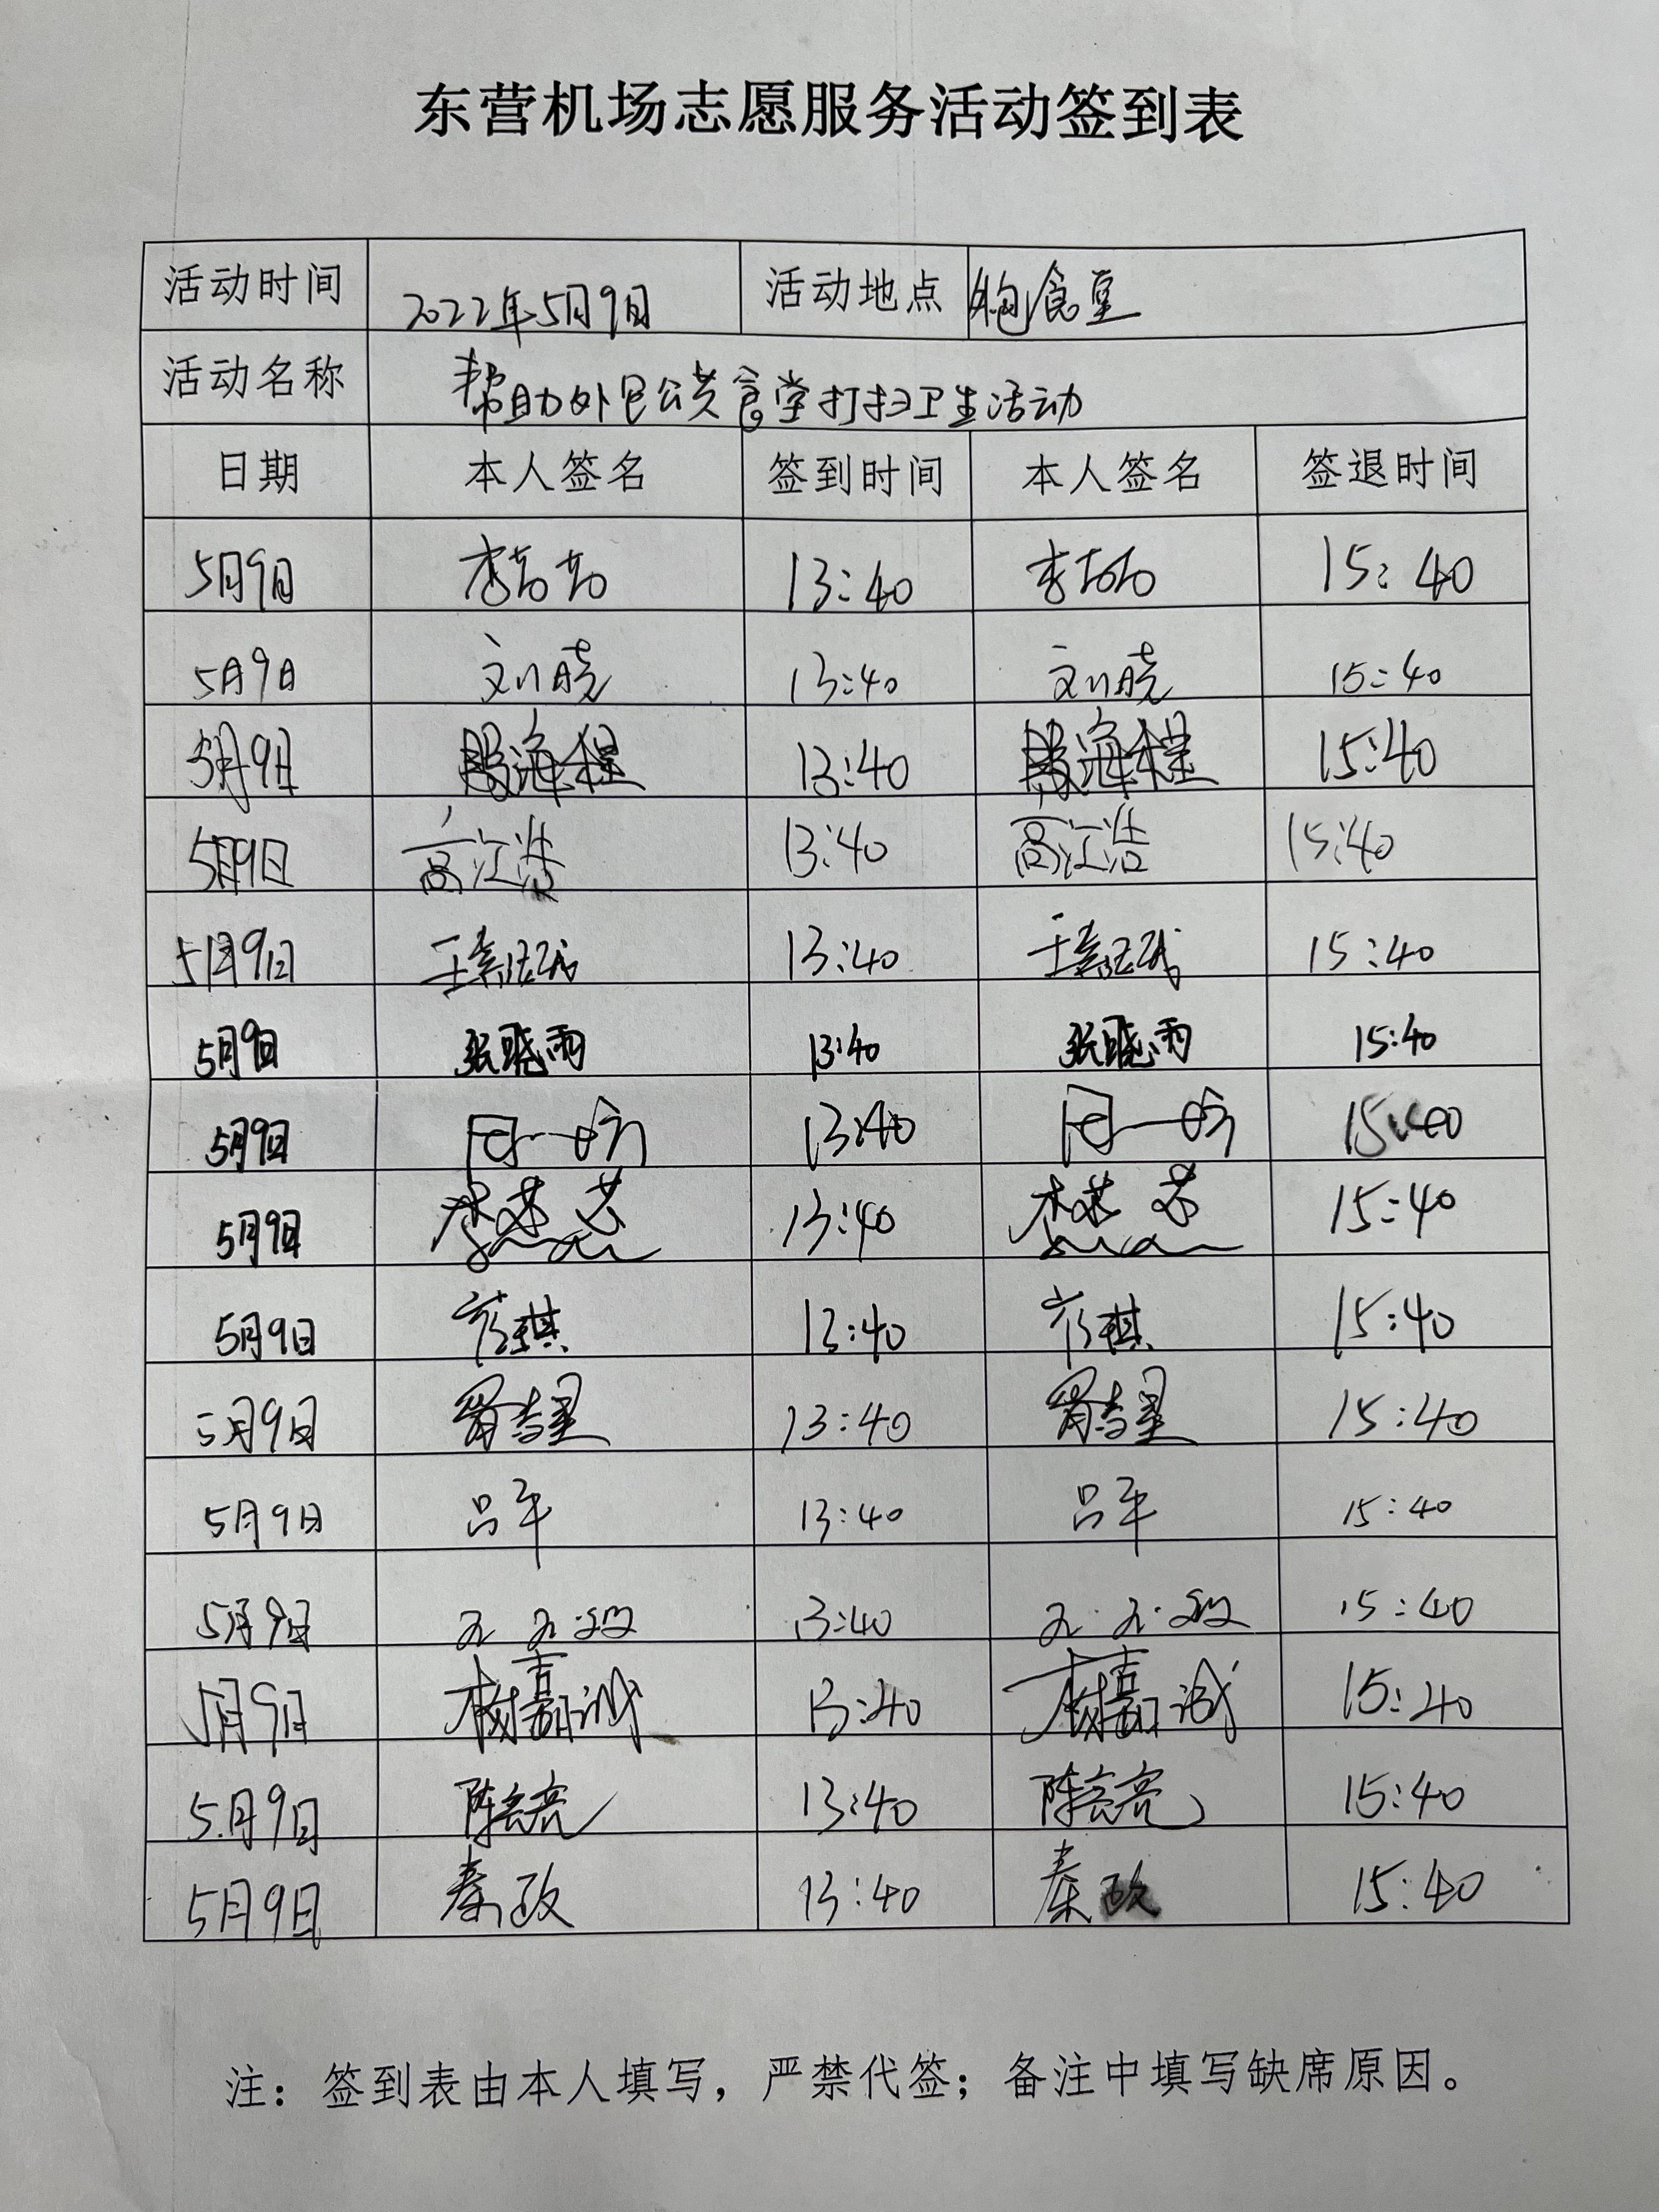 东营机场志愿服务活动签到表
活动时间 2022年5月9日 活动地点 外包食堂
活动名称 帮助外包公共食堂打扫卫生活动
日期 本人签名 签到时间 本人签名 签退时间
5月9日 13:40 15:40
5月9日 刘晓 13:40 刘晓 15:40
5月9日 殷海程 13:40 殷海程 15:40
5月9日 高江浩 13:40 高江浩 15:40
5月9日 13:40 15:40
5月9日 张晓雨 13:40 张晓雨 15:40
5月9日 13:40 15:40
5月9日 13:40 15:40
5月9日 13:40 15:40
5月9日 13:40 15:40
5月9日 吕平 13:40 吕平 15:40
5月9日 13:40 15:40
5月9日 嘉诚 13:40 嘉诚 15:40
5月9日 陈亮亮 13:40 陈亮亮 15:40
5月9日 秦政 13:40 秦政 15:40
注：签到表由本人填写，严禁代签；备注中填写缺席原因。